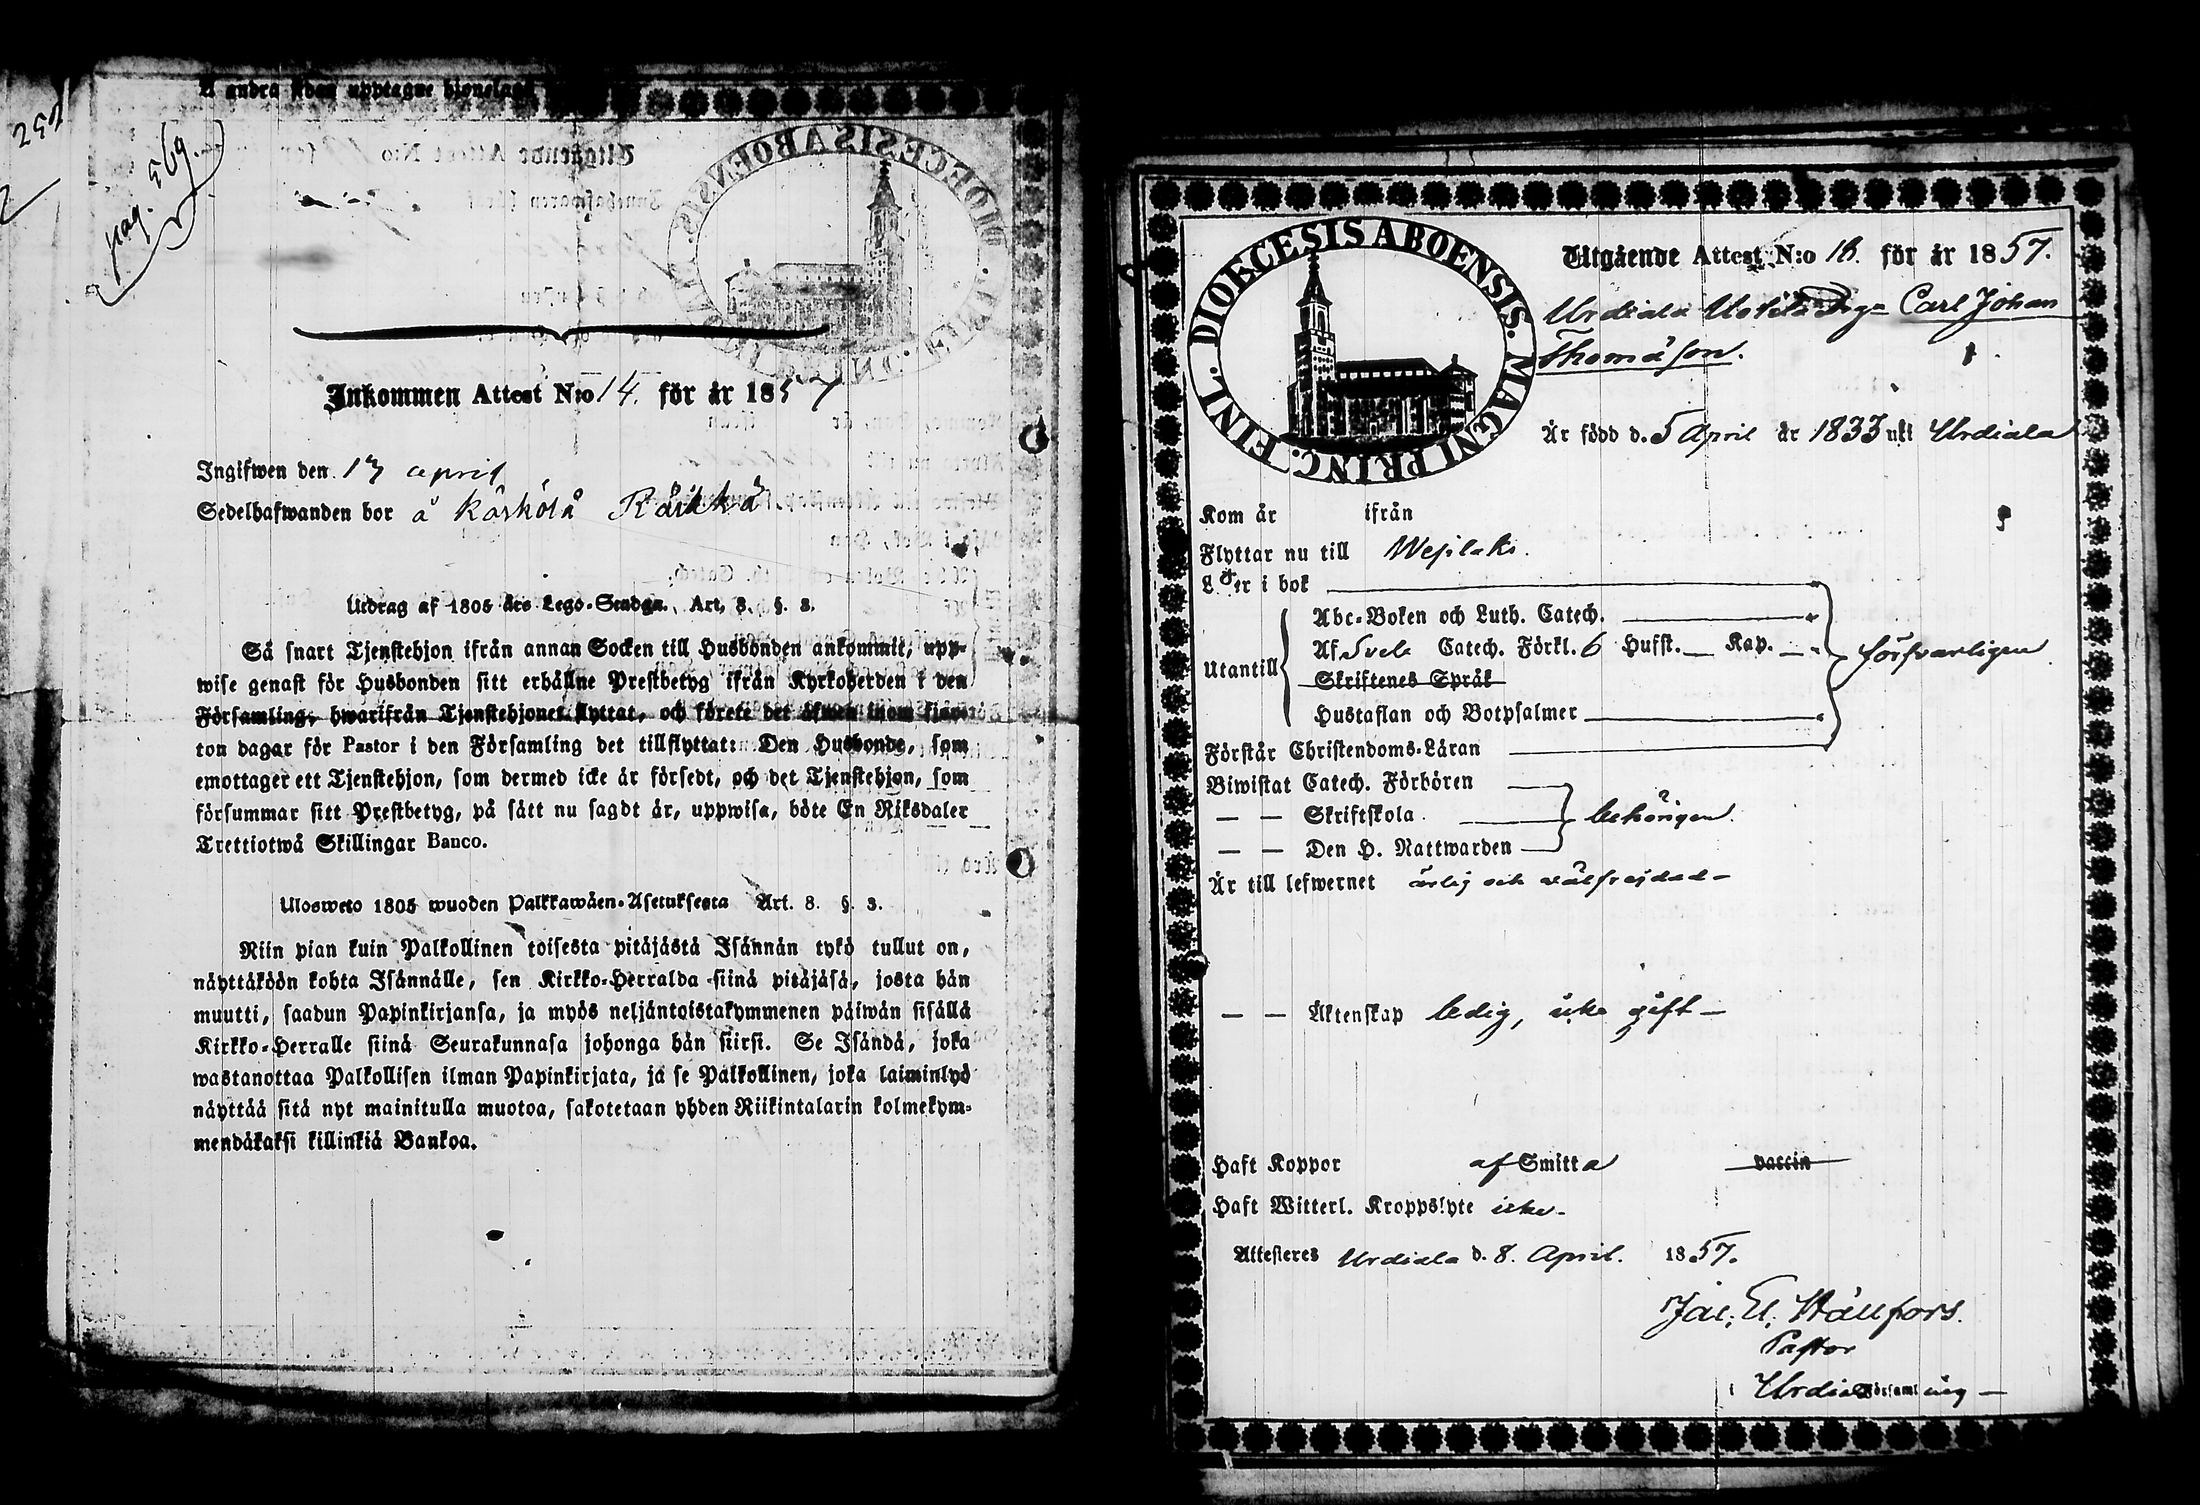 252
pag. 569.
å andra sidan upptagne hjonelag
Inkommen Attest N:o 14. för år 1857
Ingifwen den 13 april
Sedelhafwanden bor å Kärkölä Räikkä
Utdrag af 1805 års Lego-Stadga. Art. 8. §. 3.
Så snart Tjenstehjon ifrån annan Socken till Husbonden ankommit, upp-
wise genast för Husbonden sitt erhållne Prestbetyg ifrån Kyrkoherden i den
Församling, hwarifrån Tjenstehjonet flyttat, och förete det äfwen inom fjor-
ton dagar för Pastor i den Församling det tillflyttat: Den Husbonde, som
emottager ett Tjenstehjon, som dermed icke är försedt, och det Tjenstehjon, som
försummar sitt Prestbetyg, på sätt nu sagdt är, uppwisa, böte En Riksdaler
Trettiotwå Skillingar Banco.
Ulosweto 1805 wuoden Palkkawäen-Asetuksesta Art. 8. §. 3.
Niin pian kuin Palkollinen toisesta pitäjästä Isännän tykö tullut on,
näyttäköön kohta Isännälle, sen Kirkko-Herralda siinä pitäjäsä, josta hän
muutti, saadun Papinkirjansa, ja myös neljäntoistakymmenen päiwän sisällä
Kirkko-Herralle siinä Seurakunnasa johonga hän siirsi. Se Isändä, joka
wastanottaa Palkollisen ilman Papinkirjata, ja se Palkollinen, joka laiminlyö
näyttää sitä nyt mainitulla muotoa, sakotetaan yhden Riikintalarin kolmekym-
mendäkaksi killinkiä Bankoa.
DIOECESIS ABOENSIS. MAGNI PRINC. FINL.
Utgående Attest N:o 18. för år 1857.
Urdiala Carl Johan
Thomäson.
Är född d. 5 April år 1833 uti Urdiala
Kom år ifrån
Flyttar nu till Wesilaks.
Läser i bok
Utantill
Abc-Boken och Luth. Catech.
Af Sveb. Catech. Förkl. 6 Hufst. — Kap. —
Skriftenes Språk
Hustaflan och Botpsalmer
försvarligen
Förstår Christendoms-Läran
Biwistat Catech. Förhören
— — Skriftskola
— — Den H. Nattwarden
behörigen.
Är till lefwernet ärlig och välfrejdad –
— — Äktenskap ledig, icke gift –
Haft Koppor af Smitta vaccin
Haft Witterl. Kroppslyte icke.
Attesteres Urdiala d. 8. April. 1857.
Jac. El. Hällfors.
Pastor
i Urdiala Församling –